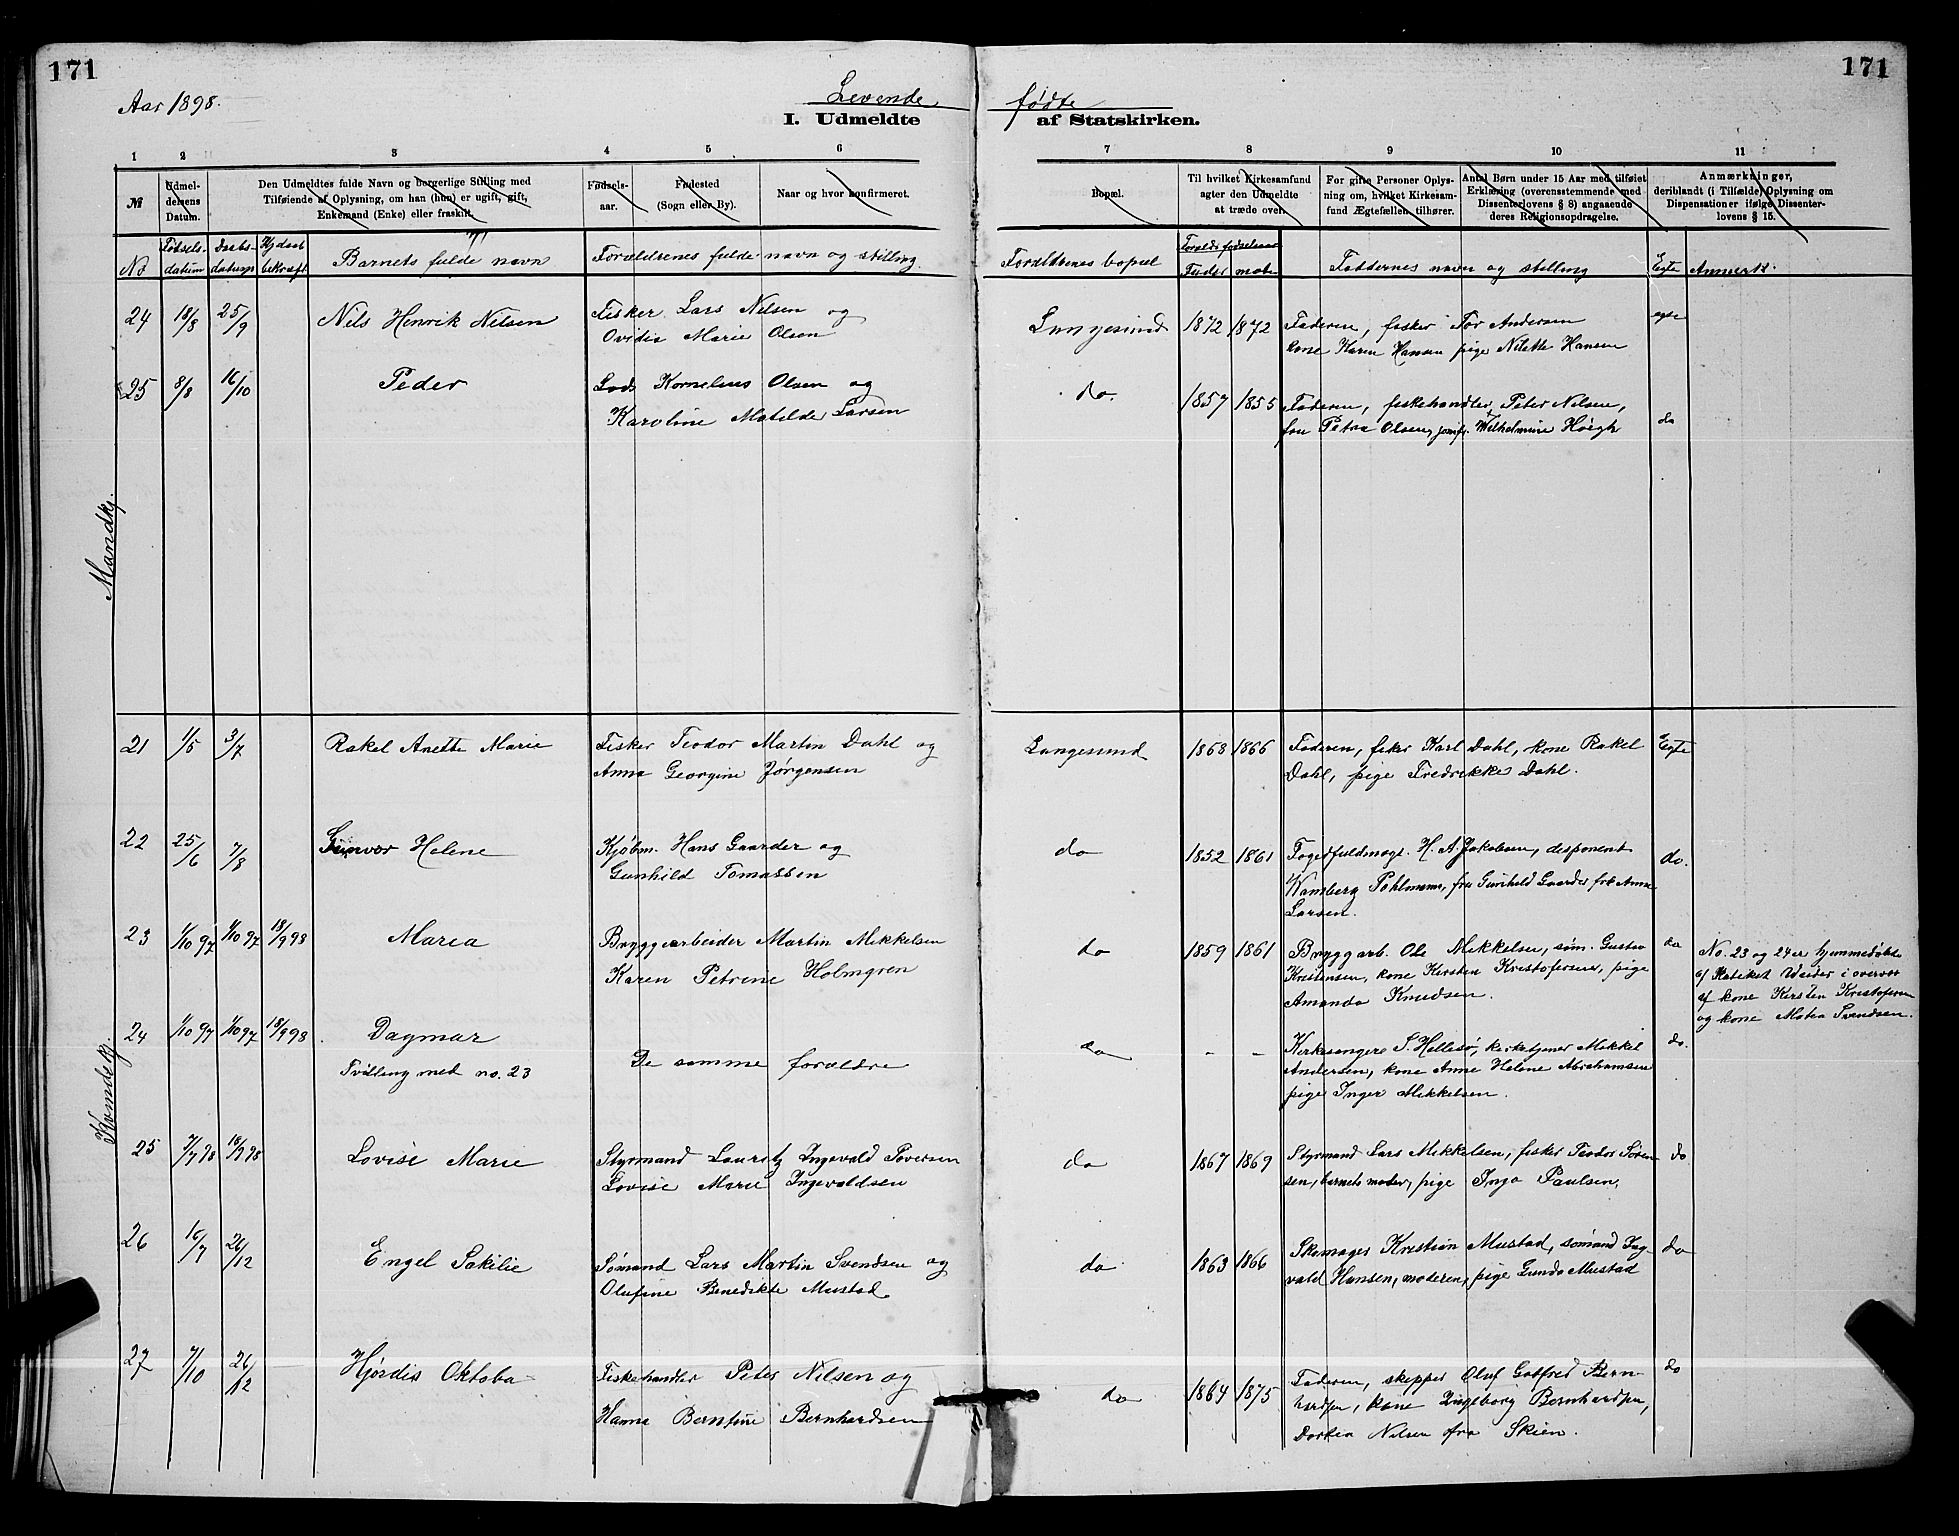 171
171
Aar 1898.
Levende fødte
I. Udmeldte af Statskirken.
1 2 3 4 5 6 7 8 9 10 11
№
Udmel-
delsens
Datum.
Den Udmeldtes fulde Navn og borgerlige Stilling med
Tilføiende af Oplysning, om han (hun) er ugift, gift,
Enkemand (Enke) eller fraskilt.
Fødsels-
aar.
Fødested
(Sogn eller By).
Naar og hvor konfirmeret.
Bopæl.
Til hvilket Kirkesamfund
agter den Udmeldte
at træde over.
For gifte Personer Oplys-
ning om, hvilket Kirkesam-
fund Ægtefællen tilhører.
Antal Børn under 15 Aar med tilføiet
Erklæring (overensstemmende med
Dissenterlovens § 8) angaaende
deres Religionsopdragelse.
Anmærkninger,
deriblandt (i Tilfælde) Oplysning om
Dispensationer ifølge Dissenter-
lovens § 15.
No
Fødsels-
datum
Daabs-
datum
Hj daab
bekræft
Barnets fulde navn
Forældrenes fulde navn og stilling.
Forældrenes bopæl
Forælds fødselsaar
Fader moder
Faddernes navn og stilling
Egte
Anmerk.
Mandkj.
24 18/8 25/9 Nils Henrik Nilsen
Fisker Lars Nilsen og
Ovidia Marie Olsen
Langesund 1872 1872
Faderen, fisker Tor Andersen
kone Karen Hansen pige Nilette Hansen
egte
25 8/8 16/10 Peder
Lods Kornelius Olsen og
Karoline Matilde Larsen
do. 1857 1855
Faderen, fiskehandler Peter Nilsen,
fru Petra Olsen, jomfr. Wilhelmine Høegh
do
Kvindekj.
21 1/5 3/7 Rakel Anette Marie
Fisker Teodor Martin Dahl og
Anna Georgine Jørgensen
Langesund 1868 1866
Faderen, fisker Karl Dahl, kone Rakel
Dahl, pige Fredrikke Dahl.
Egte
22 25/6 7/8 Gunvor Helene
Kjøbm. Hans Gaarder og
Gunhild Tomassen
do 1852 1861
Fogedfuldmægt. H. A. Jakobsen, disponent
Wamberg Pohlmann, fru Gunhild Gaarder frk Anna
Larsen.
do.
23 1/10 97 1/10 97 18/9 98 Maria
Bryggearbeider Martin Mikkelsen
Karen Petrine Holmgren
do 1859 1861
Bryggarb. Ole Mikkelsen, søm. Gustav
Kristensen, kone Kirsten Kristofersen, pige
Amanda Knudsen.
do
No. 23 og 24 er hjemmedøbte
af kone Kirsten Kristofersen
og kone Matea Svendsen.
24 1/10 97 1/10 97 18/9 98 Dagmar
Tvilling med no. 23
De samme forældre
do - -
Kirkesanger S. Hellesø, kirketjener Mikkel
Andersen, kone Anne Helene Abrahamsen
pige Inger Mikkelsen.
do.
25 7/7 98 18/9 98 Lovise Marie
Styrmand Lauritz Ingevald Toversen
Lovise Marie Ingevaldsen
do 1867 1869
Styrmand Lars Mikkelsen, fisker Teodor Søren-
sen, barnets moder, pige Inga Paulsen.
do
26 16/7 26/12 Engel Sakilie
Sømand Lars Martin Svendsen og
Olufine Benedikte Mustad.
do 1863 1866
Skomager Kristian Mustad, sømand Ing-
vald Hansen, moderen, pige Gunda Mustad
do
27 7/10 26/12 Hjørdis Oktoba
Fiskehandler Peter Nilsen og
Hanna Berntine Bernhardsen
do 1864 1875
Faderen, skipper Oluf Gotfred Bern-
hardsen, kone Ingeborg Bernhardsen,
Dortea Nilsen fra Skien.
do